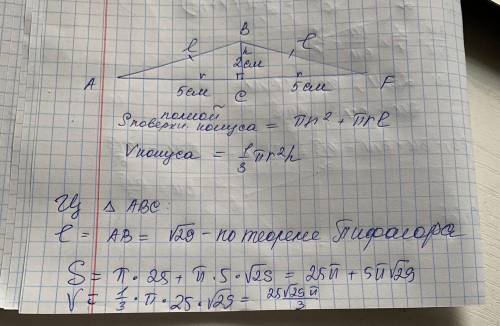 B
l l
h
2см
A r r F
5см C 5см
Sполной поверхн. конуса = πr² + πrl
Vконуса = 1/3 πr²h
Из Δ ABC:
l = AB = √29 - по теореме Пифагора
S = π · 25 + π · 5 · √29 = 25π + 5π√29
V = 1/3 · π · 25 · √29 = 25√29π/3